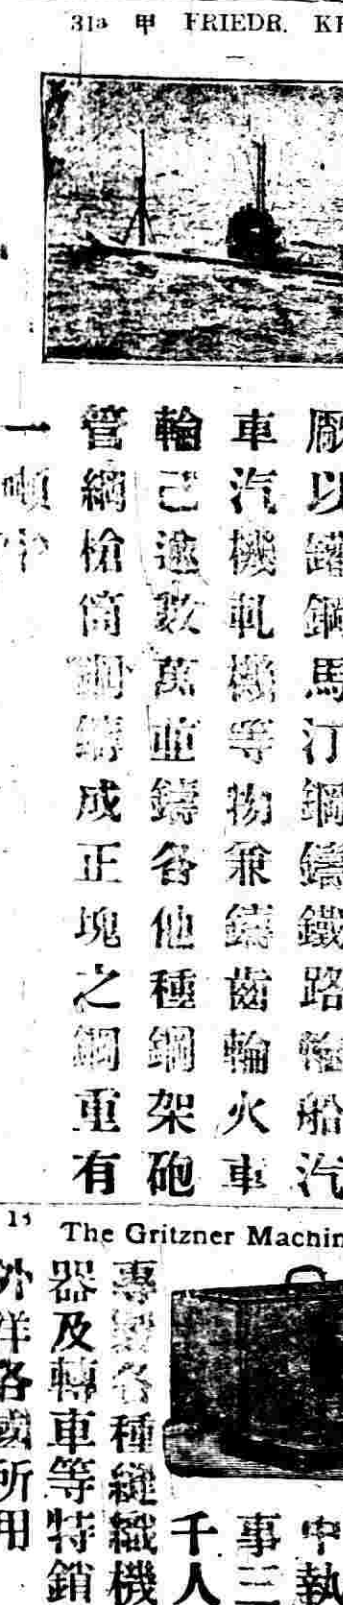 31a 甲 FRIEDR. K
廠以鑵鋼馬汀鋼鑄鐵路輪船汽
車汽機軋機等物兼鑄齒輪火車
輪己逾數萬並鑄各他種鋼架砲
管鋼槍筒鋼鑄成正塊之鋼重有
一噸半
The Gritzner Machin
中執
事三
千人
專製各種縫織機
器及轉車等特銷
外洋各國所用